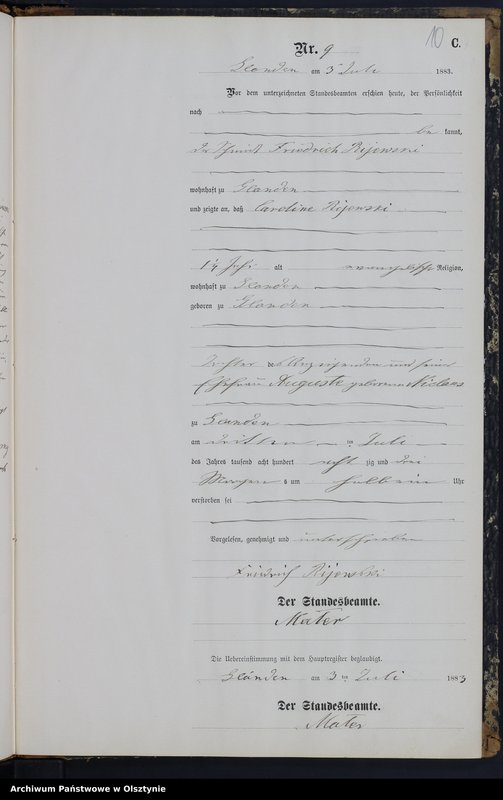 10
C.
Nr. 9
Glanden am 3. Juli 1883.
Vor dem unterzeichneten Standesbeamten erschien heute, der Persönlichkeit
nach
be kannt,
der Friedrich Rijewski
wohnhaft zu Glanden
und zeigte an, daß Caroline Rijewski
alt evangelischer Religion,
wohnhaft zu Glanden
geboren zu Glanden
Tochter des Anzeigenden und seiner
Ehefrau Auguste geborenen Niclaus
zu Glanden
am dritten ten Juli
des Jahres tausend acht hundert acht zig und drei
Morgen s um halb ein Uhr
verstorben sei
Vorgelesen, genehmigt und unterschrieben
Friedrich Rijewski
Der Standesbeamte.
Mater
Die Uebereinstimmung mit dem Hauptregister beglaubigt.
Glanden am 3 ten Juli 1883
Der Standesbeamte.
Mater
Archiwum Państwowe w Olsztynie